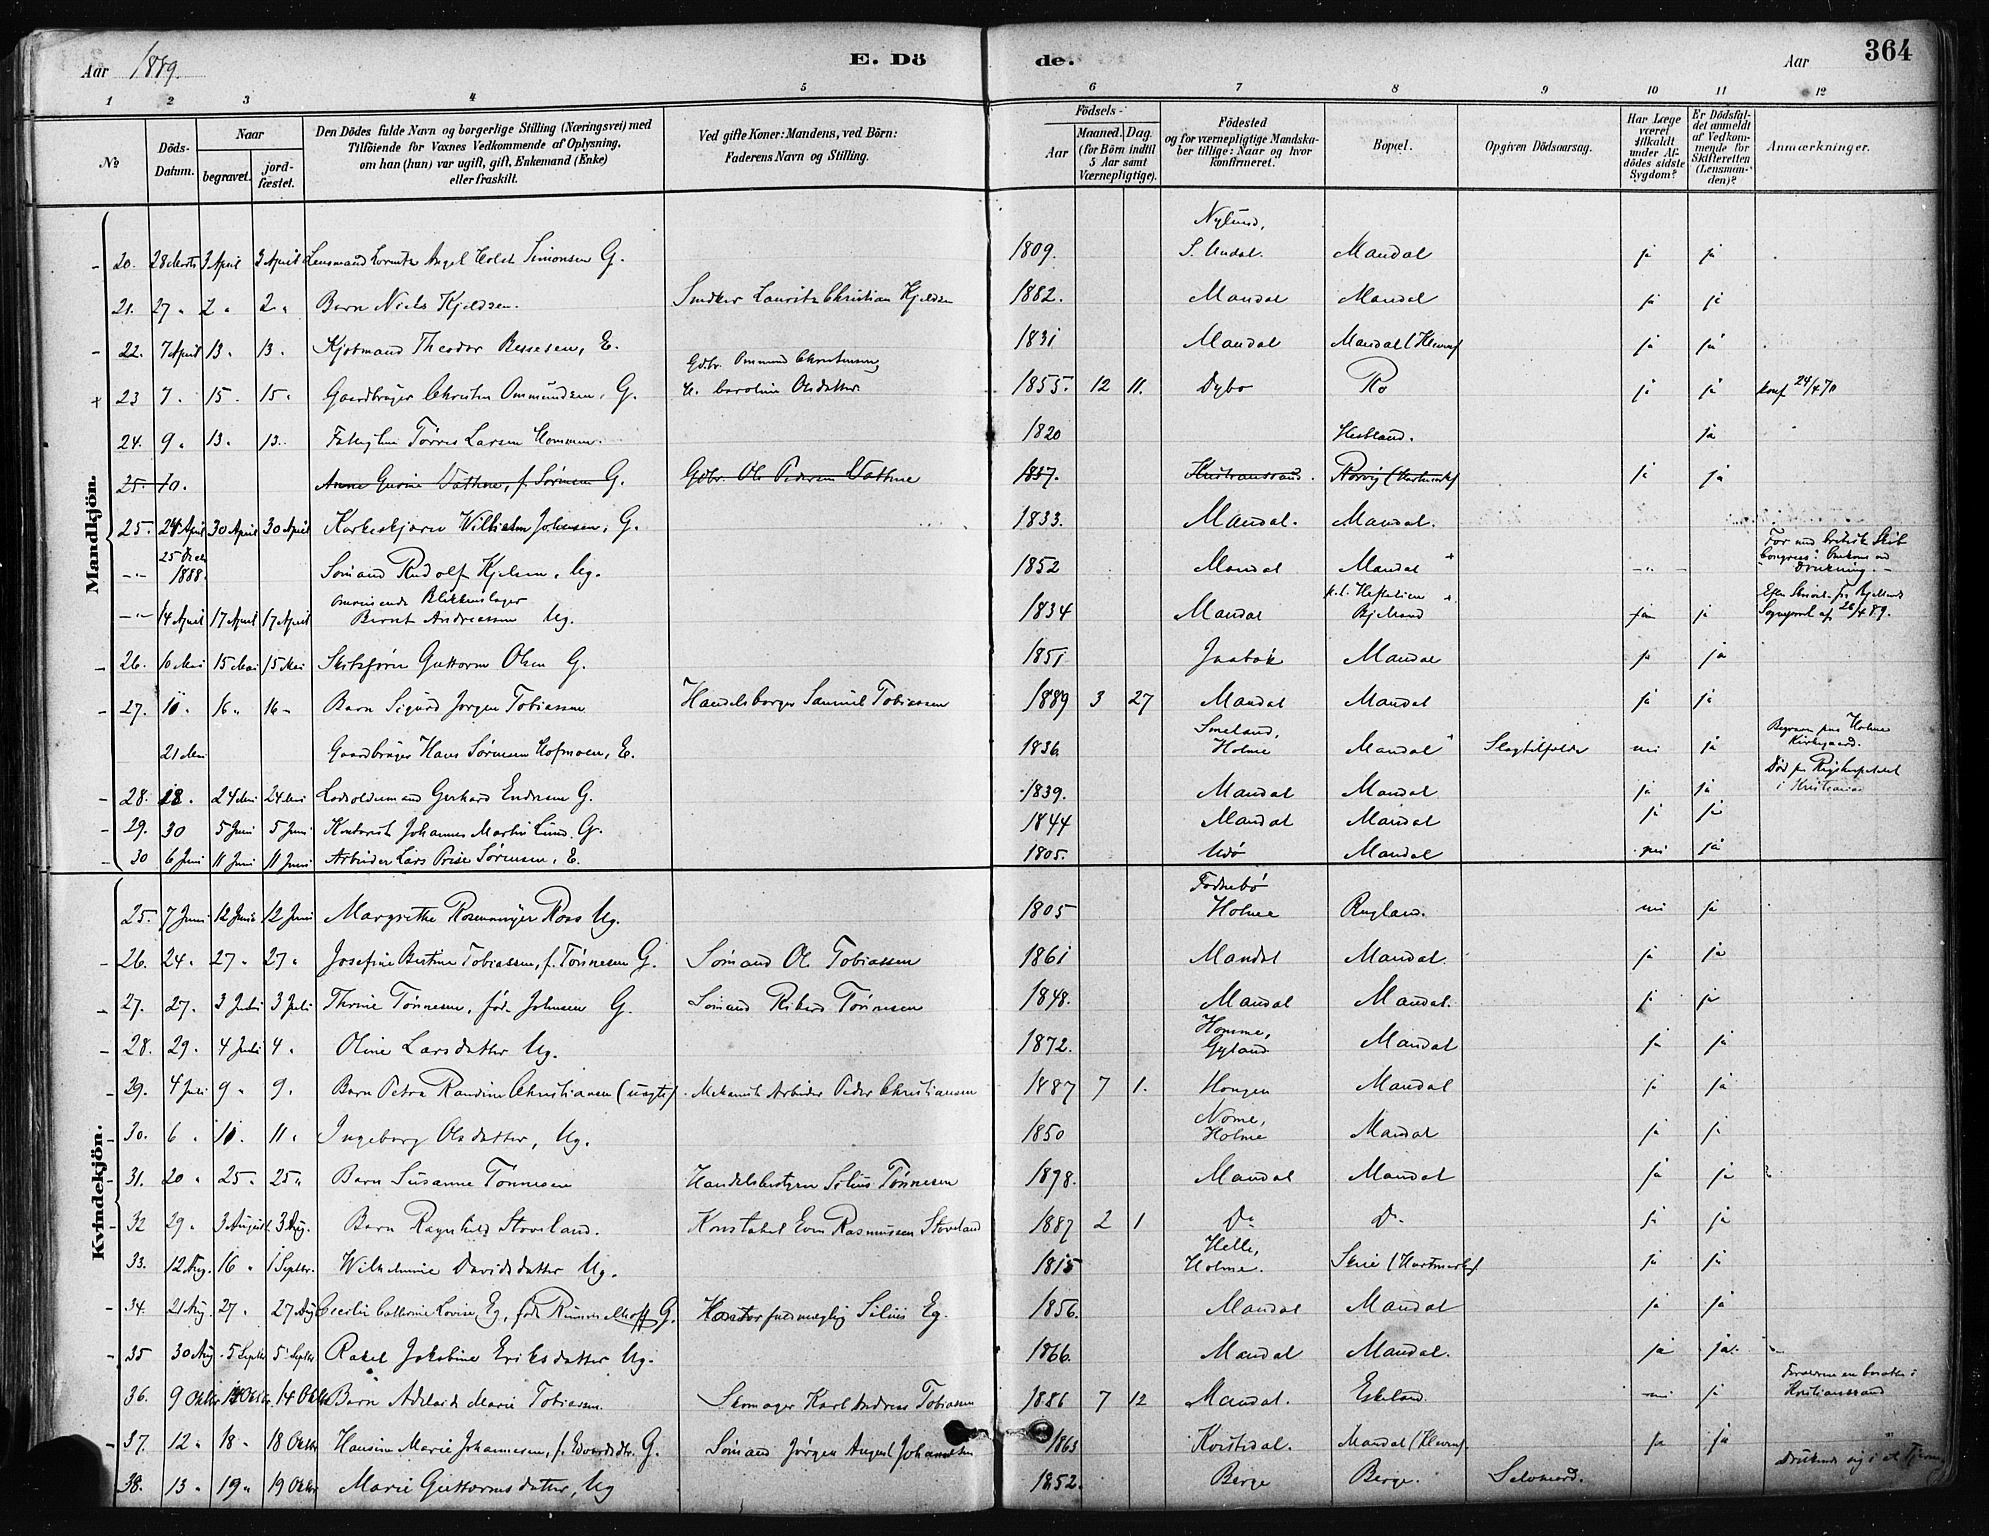 Aar 1889.
E. Dö
de.
Aar
364
1 2 3 4 5 6 7 8 9 10 11 12
№
Döds-Datum.
Naar
begravet.
jordfæstet.
Den Dödes fulde Navn og borgerlige Stilling (Næringsvei) med
Tilföiende for Voxnes Vedkommende af Oplysning,
om han (hun) var ugift, gift, Enkemand (Enke)
eller fraskilt.
Ved gifte Koner: Mandens, ved Börn:
Faderens Navn og Stilling.
Födsels-
Aar
Maaned. Dag.
(for Börn indtil
5 Aar samt
Værnepligtige).
Födested
og for værnepligtige Mandska-
ber tillige: Naar og hvor
konfirmeret.
Bopæl.
Opgiven Dödsaarsag.
Har Læge
været
tilkaldt
under Af-
dödes sidste
Sygdom?
Er Dödsfal-
det anmeldt
af Vedkom-
mende for
Skifteretten
(Lensman-
den)?
Anmærkninger.
Mandkjön.
20. 28 Marts 3 April 3 April Lensmand Lorentz Angel Holst Simonsen G. 1809. Nylund, S. Undal. Mandal ja ja
21. 27 " 2 " 2 " Barn Niels Kjeldsen. Snedker Lauritz Christian Kjeldsen 1882. Mandal Mandal ja ja
22. 7 April 13. 13. Kjøbmand Theodor Bessesen, E. 1831 Mandal Mandal ja ja
23 7. 15. 15. Gaardbruger Christen Ommundsen, G. Gdbr. Ommund Christensen, Caroline Olsdatter 1855. 12 11. Dybo Ro ja ja konf 24/4 70
24. 9 " 13. 13. Tørres Larsen Hommen. 1820 Hesland. ja
25. 10. Anne Gurine Vathne, f. Sørensen G. Gdbr. Ole Pedersen Vathne 1837. Kristianssand. ja ja
25. 24 April 30 April 30 April Korkeskjærer Wilhelm Johnsen, G. 1833. Mandal. Mandal.
25 Decbr 1888. Sømand Rudolf Kjelsen, Ug. 1852 Mandal Mandal For med britisk Skib "Congress". Omkom ved Drukning.
14 April 17 April 17 April omreisende Blikkenslager Bernt Andreassen Ug. 1834 Mandal Bjelland ja Sogneprest af 26/4 89.
26. 10 Mai 15 Mai 15 Mai Skibsfører Guttorm Olsen G. 1851 Mandal ja ja
27. 10. 16 " 16 " Barn Sigurd Jørgen Tobiassen Handelsborger Samuel Tobiassen 1889 3 27 Mandal Mandal ja ja
21 Mai Gaardbruger Hans Sørensen Hofmoen, E. 1836. Smeland, Holme Mandal Slagtilfælde nei ja Begraven paa Holme Kirkegaard.
28. 18. 24 Mai 24 Mai Lodsoldermand Gerhard Endresen G. 1839. Mandal Mandal ja ja Død paa Rigshospitalet i Kristiania
29. 30 5 Juni 5 Juni Kontorist Johannes Martin Lund. G. 1844 Mandal Mandal ja ja
30 6 Juni 11 Juni 11 Juni Arbeider Lars Sørensen, E. 1805. Udø Mandal nei ja
Kvindekjön.
25. 7 Juni 12 Juni 12 Juni Margrethe Rosenmeyer Roas Ug. 1805 Fodnebø Holme Rugland. nei ja
26. 24. 27 " 27 " Josefine Bertine Tobiassen, f. Tønnesen G. Sømand Ole Tobiassen 1861 Mandal Mandal. ja ja
27. 27. 3 Juli 3 Juli Thrine Tønnesen, fød. Johnsen G. Sømand Rikard Tønnesen 1848. Mandal Mandal. ja ja
28. 29. 4 Juli 4 " Oline Larsdatter Ug. 1872. Homme, Gyland Mandal ja ja
29. 4 Juli 9 " 9. Barn Petra Randine Christiansen (uægte) Mekanisk Arbeider Peder Christiansen 1887 7 1. Mandal ja ja
30. 6 " 10. 11 " Ingeborg Olsdatter, Ug. 1850 Nome, Holme Mandal ja ja
31. 20 " 25 " 25 " Barn Susanne Tønnesen Handelsbestyrer Silius Tønnesen 1898. Mandal Mandal ja ja
32 29 " 3 August 3 Aug. Barn Ragnhild Stoveland. Konstabel Even Rasmussen Stoveland 1887 2 1 Do Do ja ja
33. 12 Aug. 16 " 1 Septbr. Wilhelmine Davidsdatter Ug. 1815 Helle, Holme. ja ja
34. 21 Aug. 27 " 27 Aug Cecilie Cathrine Lovise Eg, født Rummelhoff G. Kontorfuldmægtig Silius Eg. 1856. Mandal Mandal ja ja
35 30 Aug. 5 Septbr 5 Septbr Rakel Jakobine Eriksdatter Ug. 1866. Mandal Mandal. ja ja
36. 9 Oktbr 14 Oktbr 14 Oktbr Barn Adelaide Marie Tobiassen. Skomager Karl Andreas Tobiassen 1886 7 12 Mandal. Eskeland. nei ja Forældrene ere bosatte i Kristianssand
37. 12 " 18 " 18 Oktbr Hansine Marie Johannesen, f. Edvardsdtr. G. Sømand Jørgen August Johannesen 1863 Mandal ja ja
38. 13 " 19 " 19 Oktbr Marie Guttormsdatter, Ug 1852. Berge Berge. Selvmord. Druknede sig i et Tjern